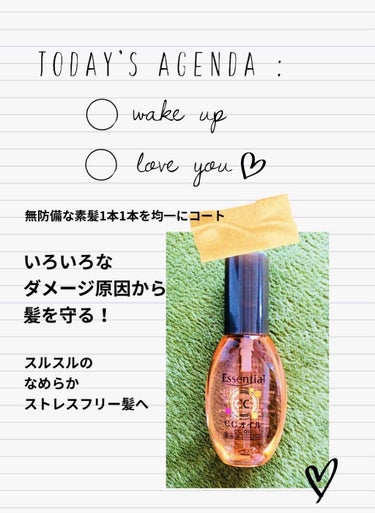 TODAY'S AGENDA :
wake up
love you
無防備な素髪1本1本を均一にコート
いろいろな
ダメージ原因から
髪を守る！
スルスルの
なめらか
ストレスフリー髪へ
Essential
CC
CCオイル
CC OIL